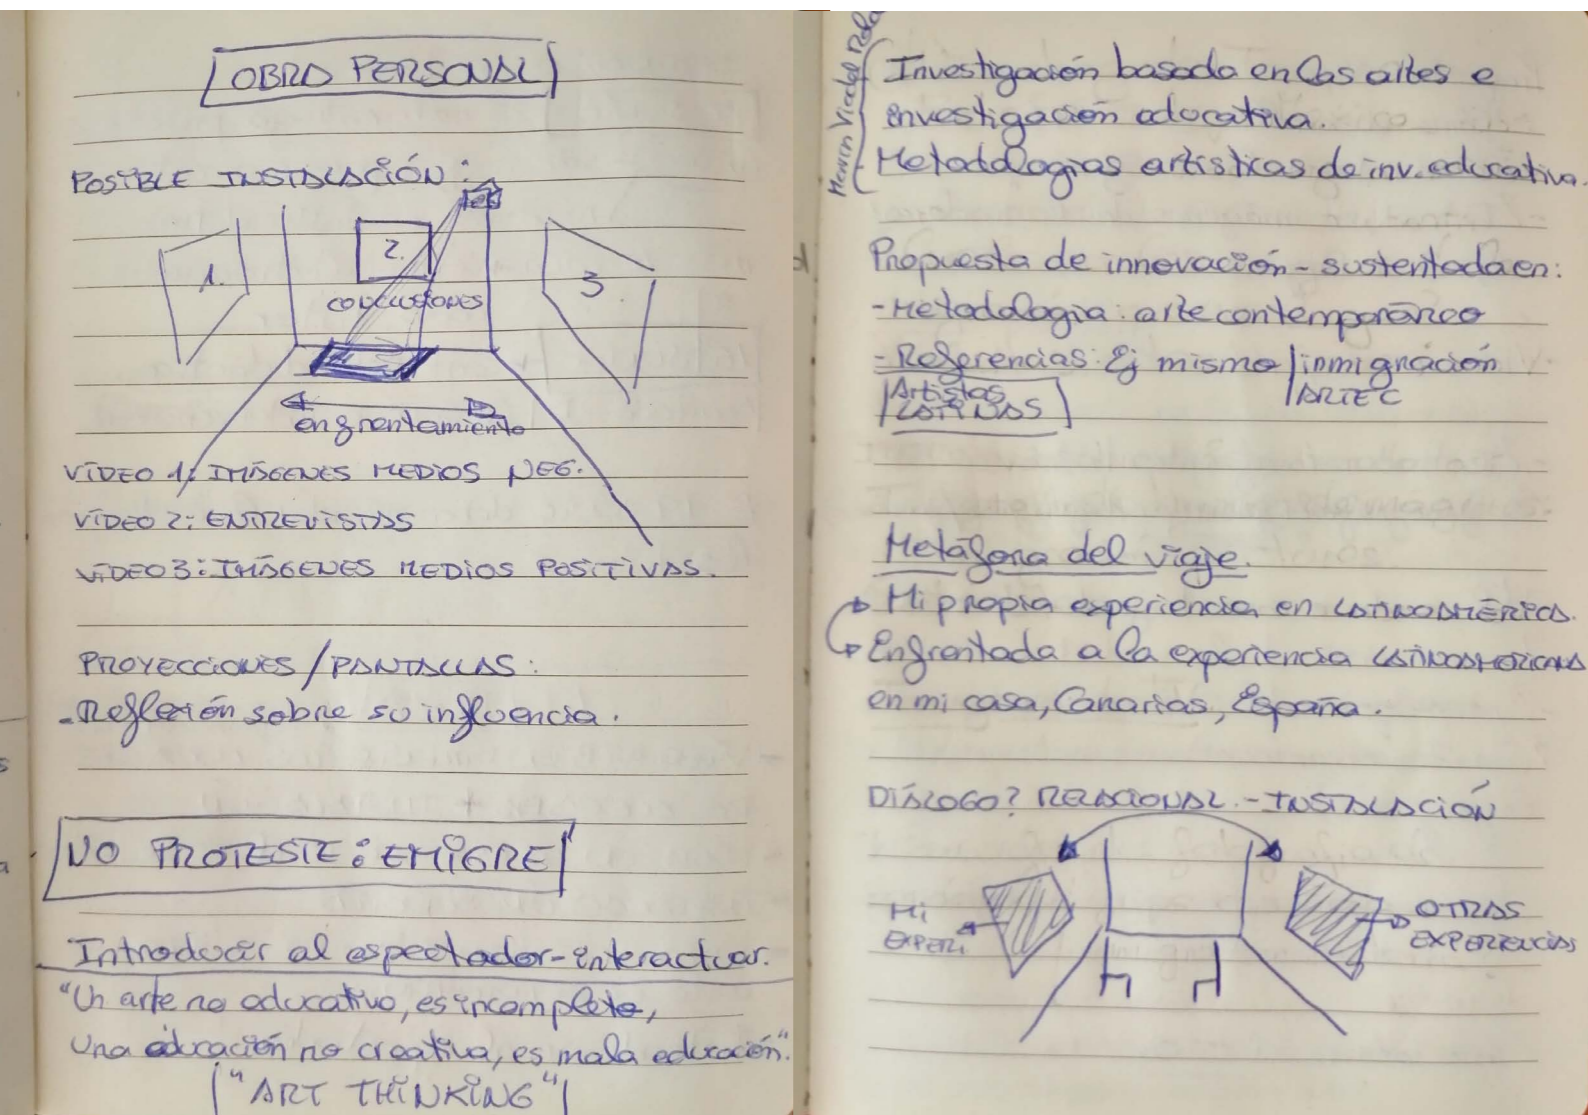 OBRA PERSONAL
POSIBLE INSTALACIÓN:
1.
2.
3
CONCLUSIONES
enfrentamiento
VÍDEO 1: IMÁGENES MEDIOS NEG.
VÍDEO 2: ENTREVISTAS
VÍDEO 3: IMÁGENES MEDIOS POSITIVAS.
PROYECCIONES/PANTALLAS:
-Reflexión sobre su influencia.
NO PROTESTE: EMIGRE
Introducir al espectador-interactuar.
"Un arte no educativo, es incompleto,
una educación no creativa, es mala educación".
"ART THINKING"
Investigación basada en las artes e
investigación educativa.
Metodologías artísticas de inv. educativa.
Propuesta de innovación - sustentada en:
- Metodología: arte contemporáneo
- Referencias: Ej mismo inmigración
Artistas ARTE C
LATINAS
Metáfora del viaje.
Mi propia experiencia en LATINOAMÉRICA.
Enfrentada a la experiencia LATINOAMERICANA
en mi casa, Canarias, España.
DIÁLOGO? RELACIONAL. - INSTALACIÓN
Mi
EXPERI.
OTRAS
EXPERIENCIAS